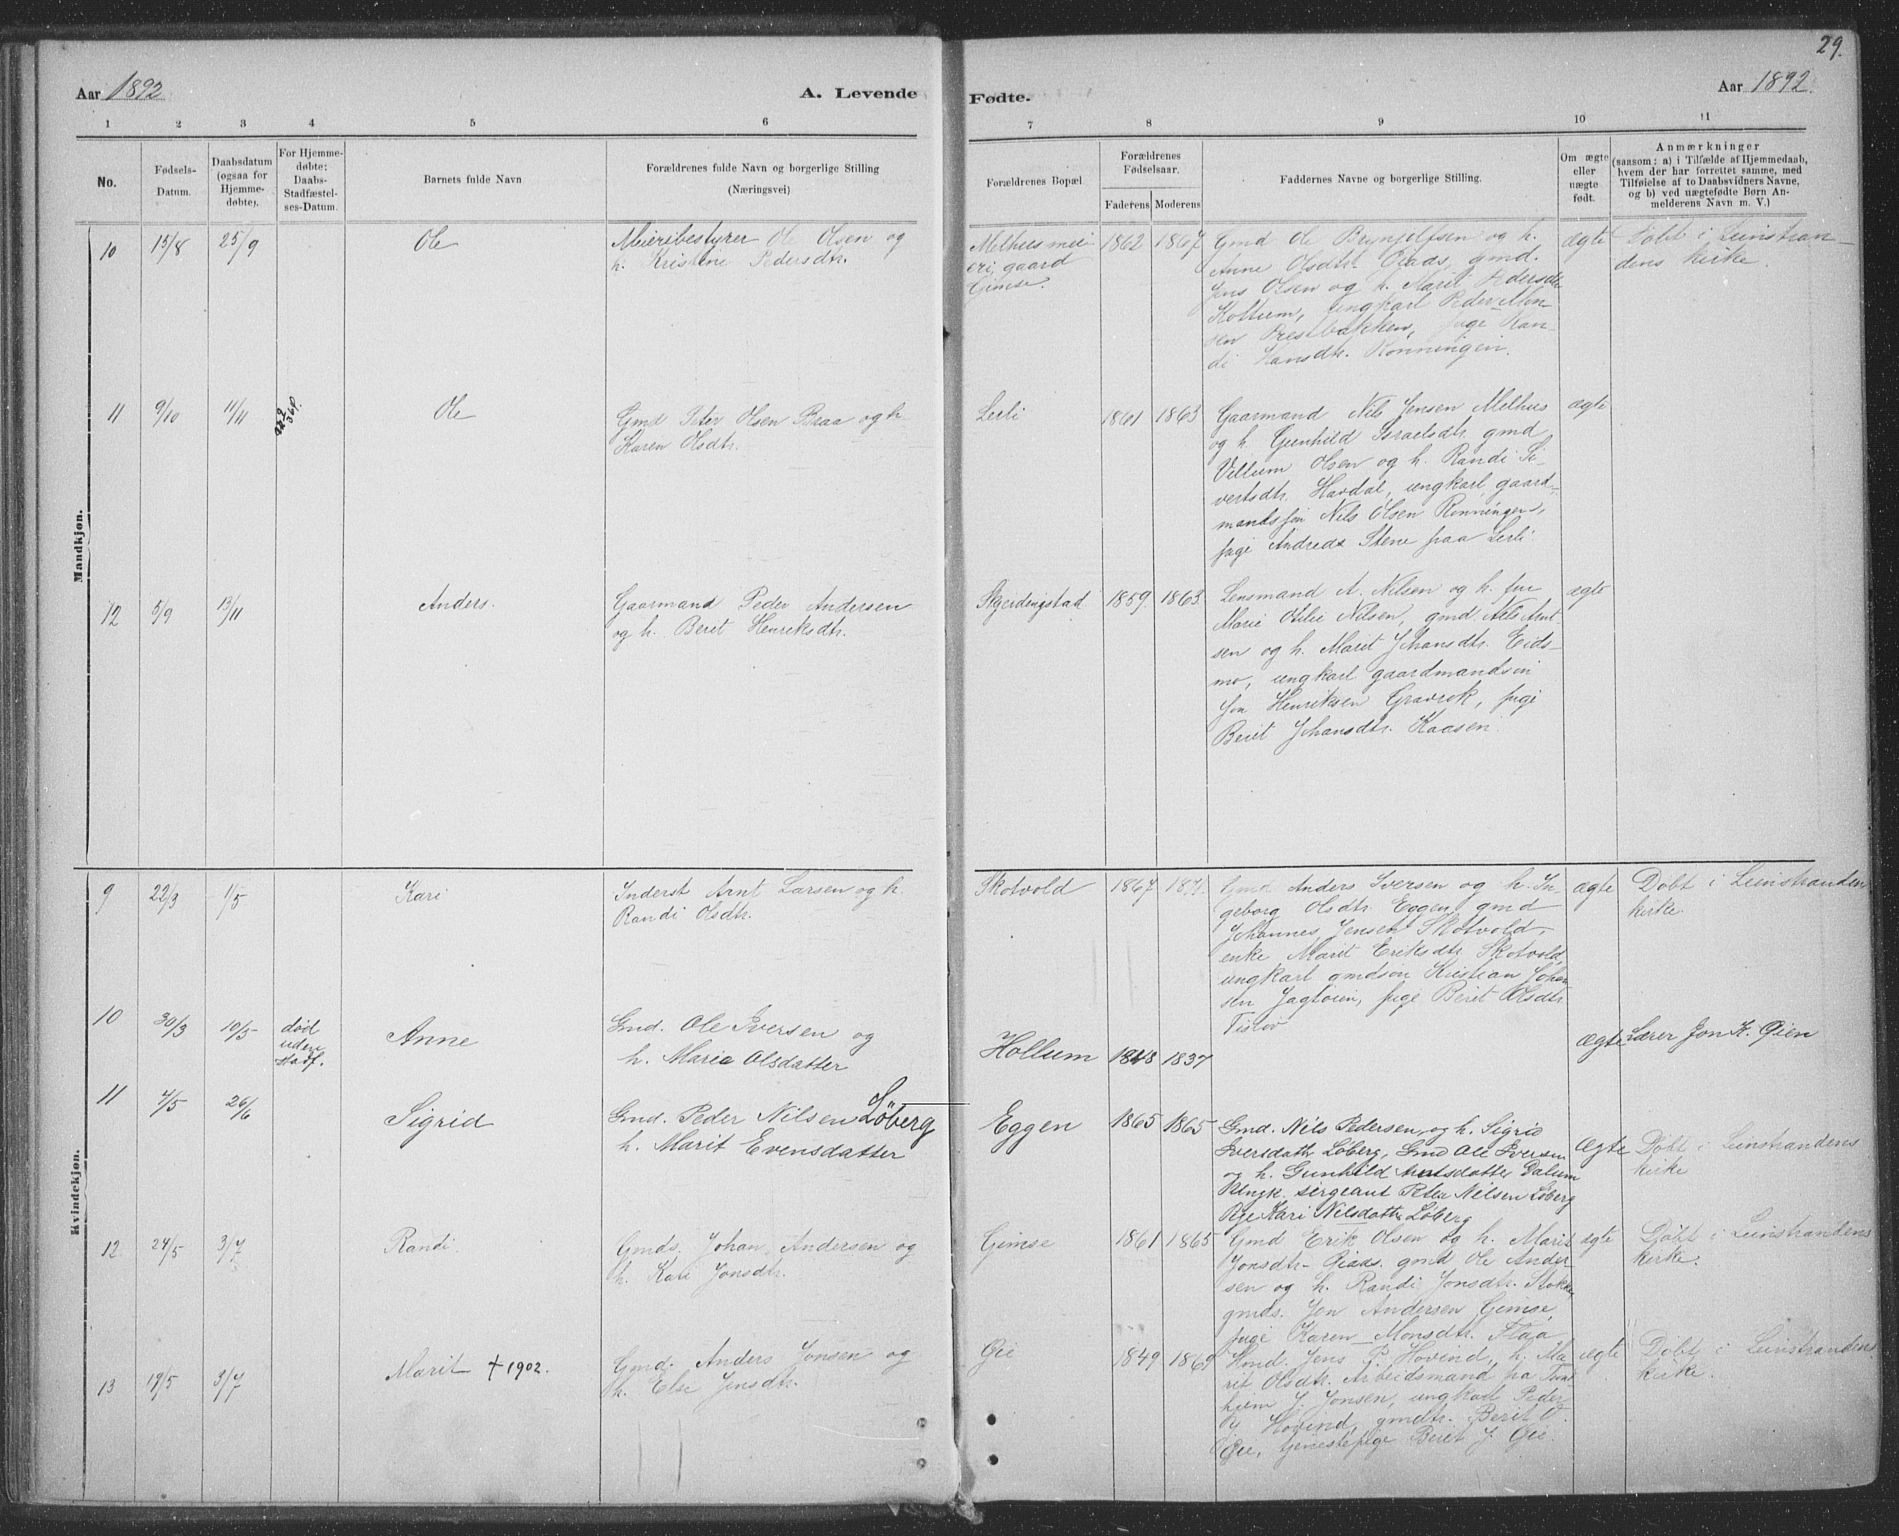 29.
Aar 1892
A. Levende
Fødte.
Aar 1892.
1 2 3 4 5 6 7 8 9 10 11
No.
Fødsels-
Datum.
Daabsdatum
(ogsaa for
Hjemme-
døbte).
For Hjemme-
døbte:
Daabs-
Stadfæstel-
ses-Datum.
Barnets fulde Navn
Forældrenes fulde Navn og borgerlige Stilling
(Næringsvei)
Forældrenes Bopæl.
Forældrenes
Fødselsaar.
Faderens Moderens
Faddernes Navne og borgerlige Stilling.
Om ægte
eller
uægte
født.
Anmærkninger
(saasom: a) i Tilfælde af Hjemmedaab,
hvem der har forrettet samme, med
Tilføielse af to Daabsvidners Navne,
og b) ved uægtefødte Børn An-
melderens Navn m. V.)
Mandkjøn.
10 15/8 25/9 Ole
Meieribestyrer Ole Olsen og
h. Kristine Pedersdtr.
Melhus mei-
eri, gaard
Gimse.
1862 1867
Gmd Ole Brynjolfsen og h.
Anne Olsdtr. Øiaas, gmd.
Jens Olsen og h. Marit Pedersdtr
Kollum, ungkarl Peder Mon-
sen Prestbakken, pige Ran-
di Hansdtr. Rønningen.
ægte
Døbt i Leinstran-
dens kirke.
11 9/10 11/11 Ole
Gmd Peter Olsen Braa og h.
Karen Olsdtr.
Lerli
1861 1863
Gaarmand Nils Jensen Melhus
og h. Gunhild Israelsdtr. gmd
Villum Olsen og h. Randi Si-
vertsdtr. Havdal, ungkarl gaard-
mandsøn Nils Olsen Rønningen,
pige Andrea Stene paa Lerli.
ægte
12 5/9 13/11 Anders.
Gaarmand Peder Andersen
og h. Beret Henriksdtr.
Skjerdingstad
1859. 1863.
Lensmand A. Nilsen og h. fru
Marie Otilie Nilsen, gmd. Nils Arnt-
sen og h. Marit Johansdtr. Eids-
mo, ungkarl gaardmandsøn
Jon Henriksen Gravrok, pige
Beret Johansdtr. Kaasen.
ægte
Kvindekjøn.
9 22/3 1/5 Kari
Inderst Arnt Larsen og h.
Randi Olsdtr.
Skotvold
1867 1871.
Gmd Anders Iversen og h. In-
geborg Olsdtr. Eggen, gmd
Johannes Jensen Skotvold,
enke Marit Eriksdtr. Skotvold,
ungkarl gmdsøn Kristian Johan-
sen Jagtøien, pige Beret Olsdtr.
ægte
Døbt i Leinstranden
kirke.
10 30/3 10/5
død
uden
stadf.
Anne
Gmd. Ole Iversen og
h. Marie Olsdatter
Hollum
1848 1837
ægte
Lærer Jon K. Øien
11 4/5 26/6 Sigrid
Gmd. Peder Nilsen Løberg
h. Marit Evensdatter
Eggen
1865 1865
Gmd. Nils Pedersen og h. Sigrid
Iversdatter Løberg, Gmd Ole Iversen
og h. Gunhild Arntsdatter Dalum
Ungk. sergeant Peter Nilsen Løberg
Pige Kari Nilsdatter Løberg
ægte
Døbt i Leinstrandens
kirke
12 24/5 3/7 Randi.
Gmds. Johan Andersen og
h. Kari Jonsdtr.
Gimse
1861 1865
Gmd Erik Olsen og h. Marit
Jonsdtr. Øiaas. gmd Ole Ander-
sen og h. Randi Jonsdtr. Stokke,
gmds. Jon Andersen Gimse,
pige Karen Monsdtr. Flaa
ægte
Døbt i Leinstrandens
kirke.
13 19/5 3/7 Marit † 1902.
Gmd. Anders Jonsen og
h. Else Jensdtr.
Øie
1849 1869
Hmd. Jens P. Hovind, h. Ma-
rit Olsdtr. Arbeidsmand paa Tron-
hjem J. Jonsen, ungkarl Peder
J. Hovind, gmdtr. Berit O.
Øie, tjenestepige Berit J. Øie.
ægte
Døbt i Leinstrandens
kirke.